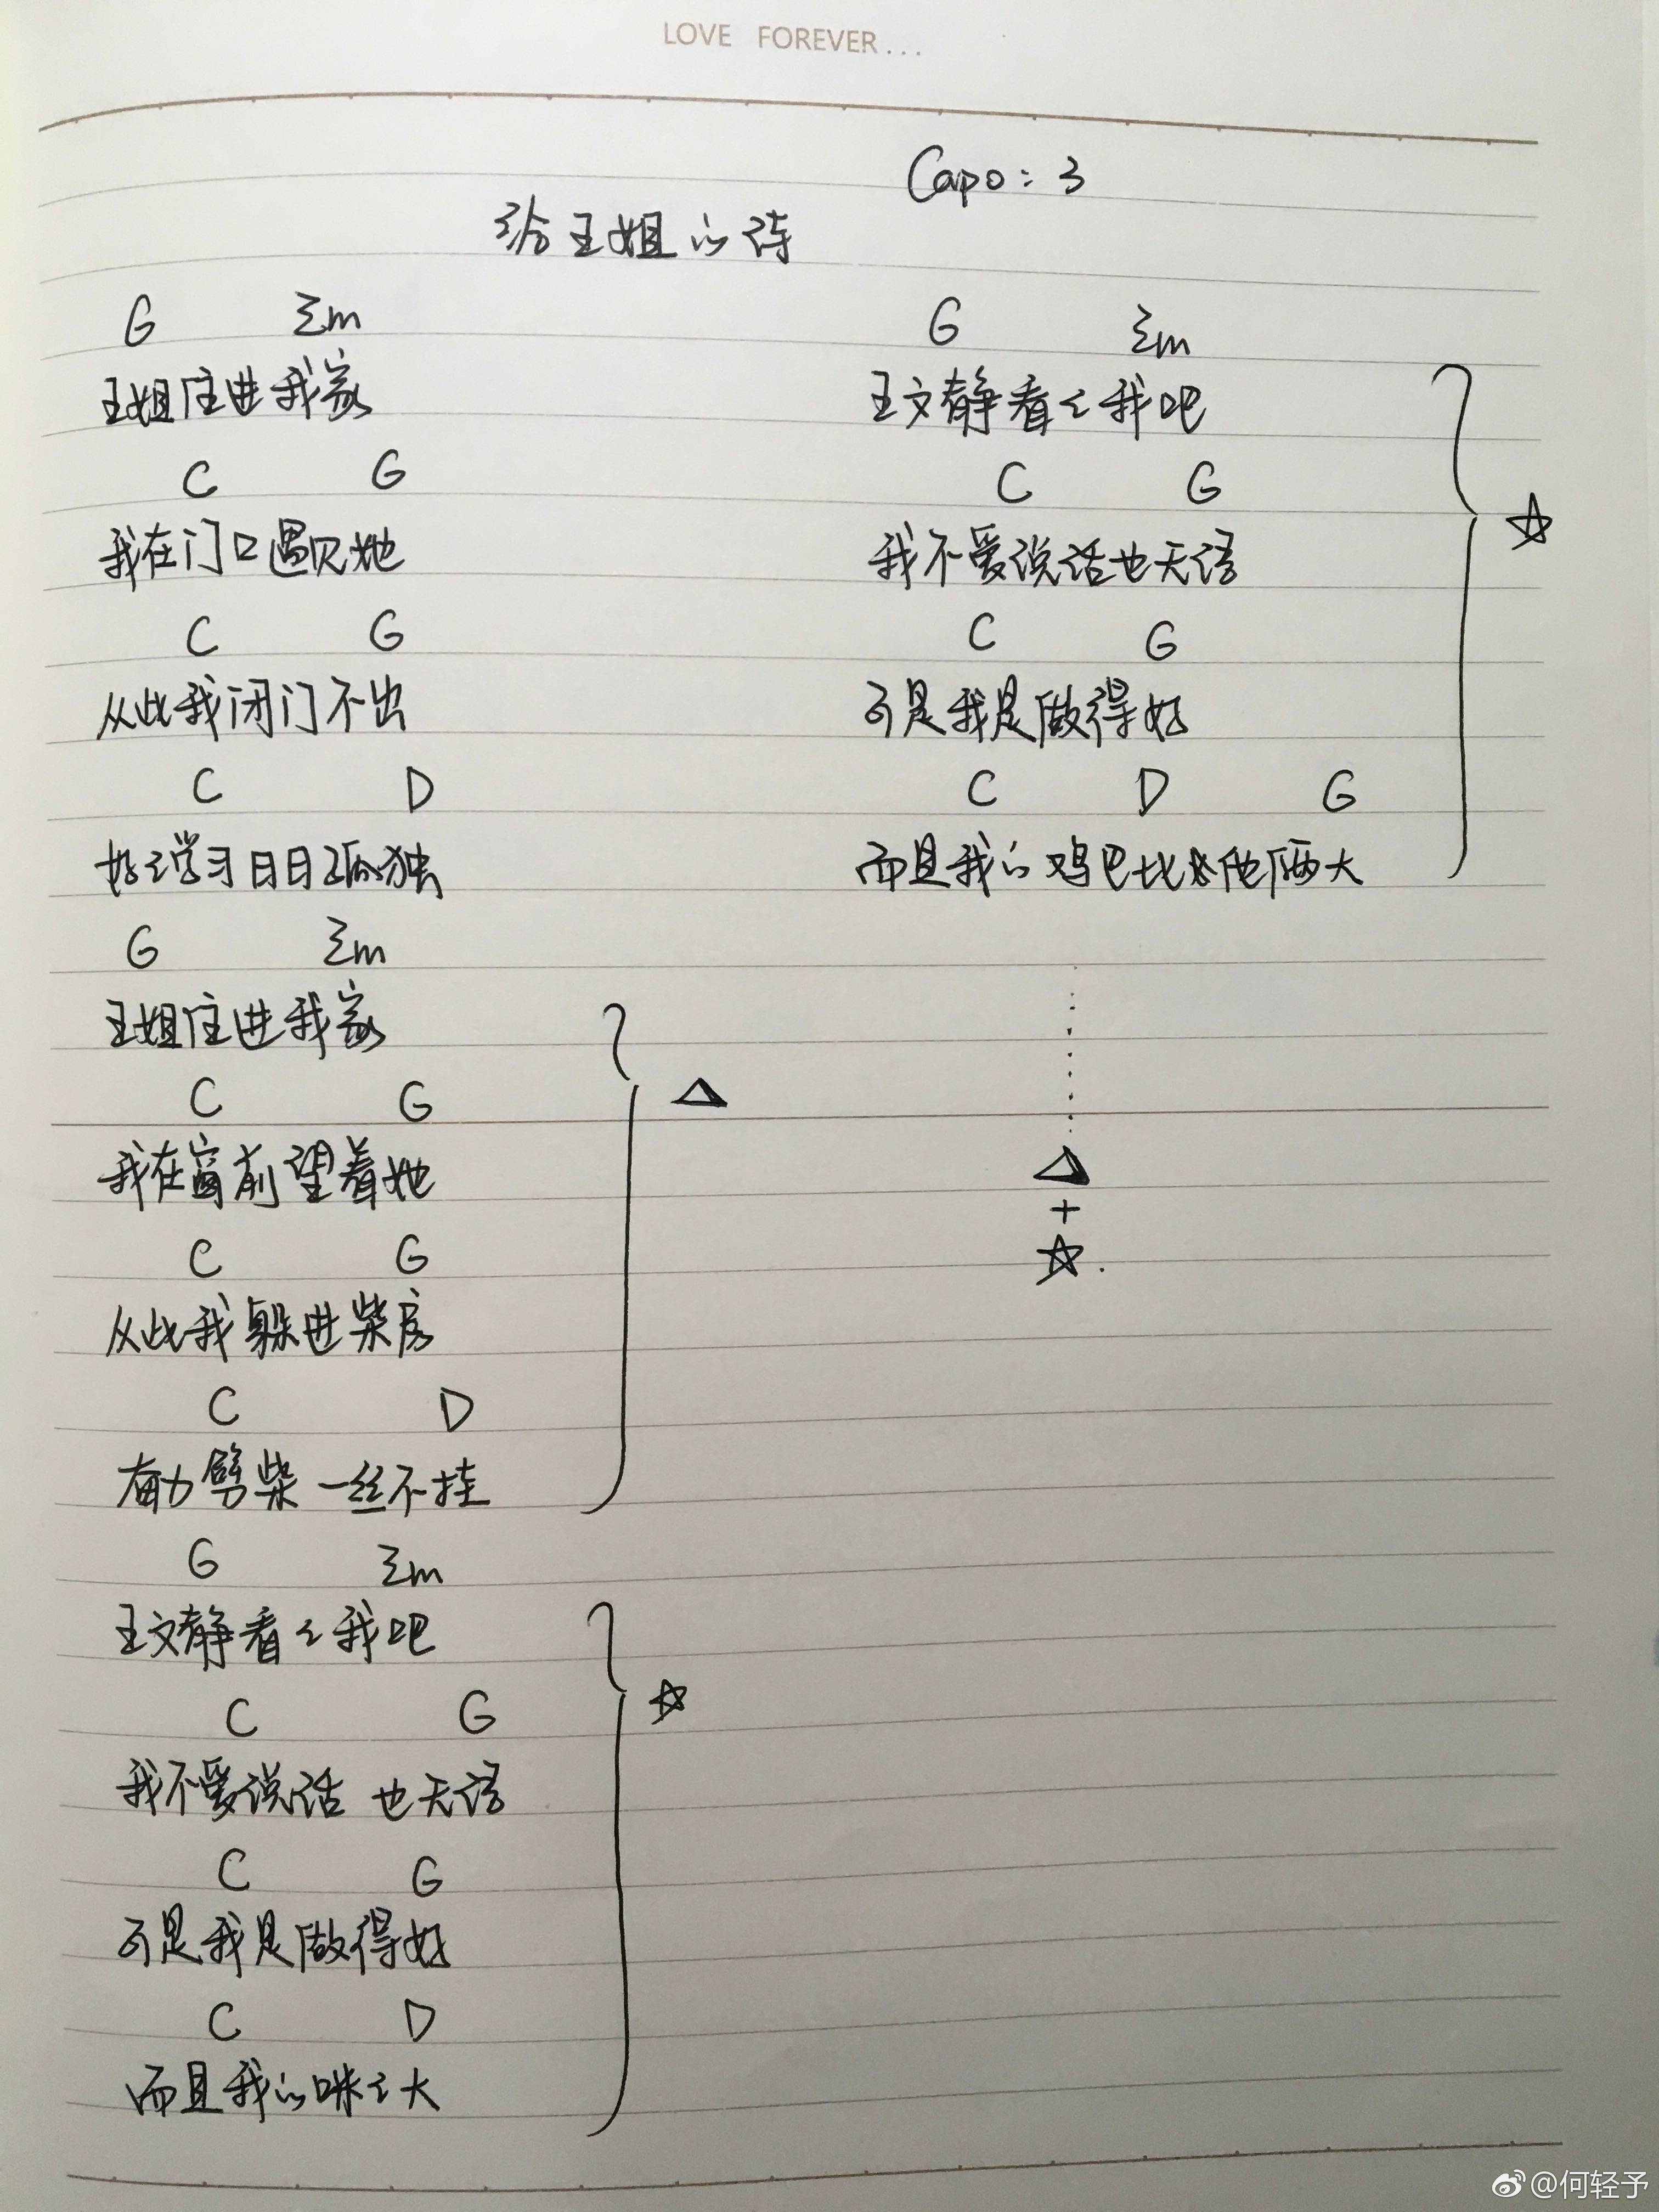 LOVE FOREVER...
Capo: 3
给王姐的诗
G Em
王姐住进我家
C G
我在门口遇见她
C G
从此我闭门不出
C D
好々学习日日孤独
G Em
王姐住进我家
C G
我在窗前望着她
C G
从此我躲进柴房
C D
奋力劈柴一丝不挂
G Em
王文静看々我吧
C G
我不爱说话也无语
C G
可是我是做得好
C D
而且我的咪々大
G Em
王文静看々我吧
C G
我不爱说话也无语
C G
可是我是做得好
C D G
而且我的鸡巴比他俩大
△
☆
☆
△
+
☆.
@何轻予